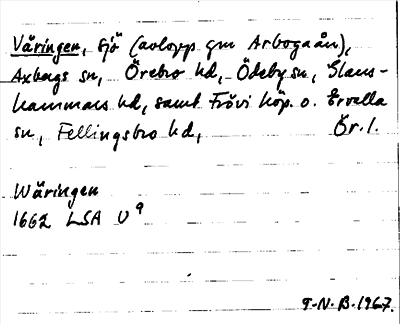 Väringen, sjö (avlopp gm Arbogaån),
Axbergs sn, Örebro hd, Ödeby sn, Glans-
hammars hd, samt Frövi köp. o. Ervalla
sn, Fellingsbro hd, Ör. l.
Wäringen
1662 LSA U⁹
T-N. B. 1967.